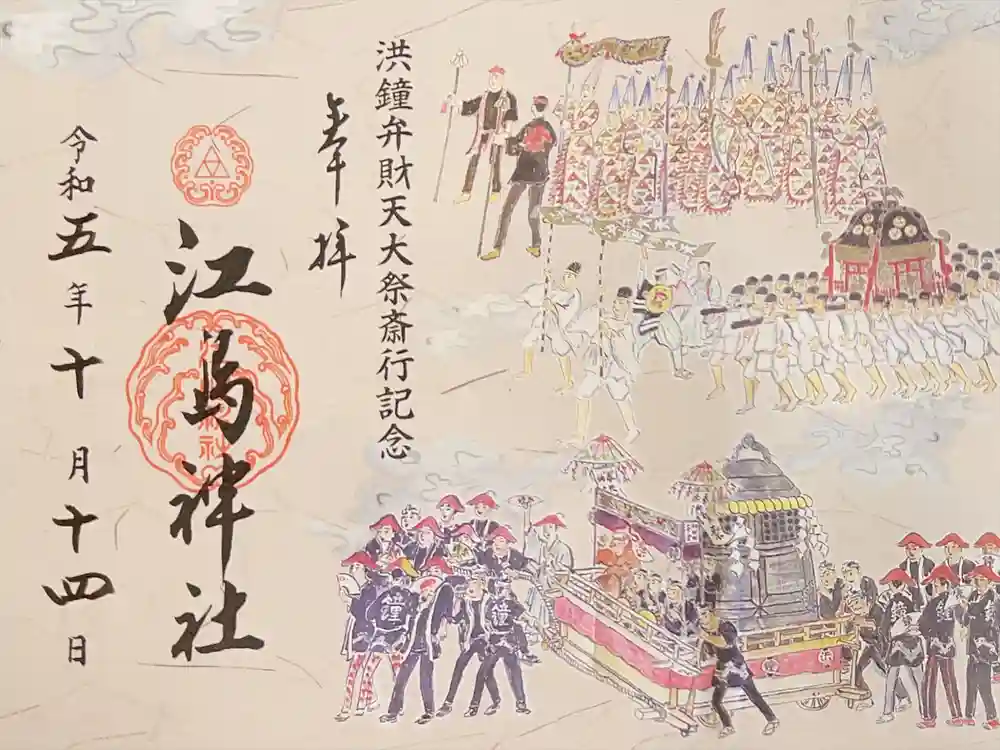 洪鐘弁財天大祭斎行記念
奉拝
江島神社
令和五年十月十四日
鐘
鐘
鐘